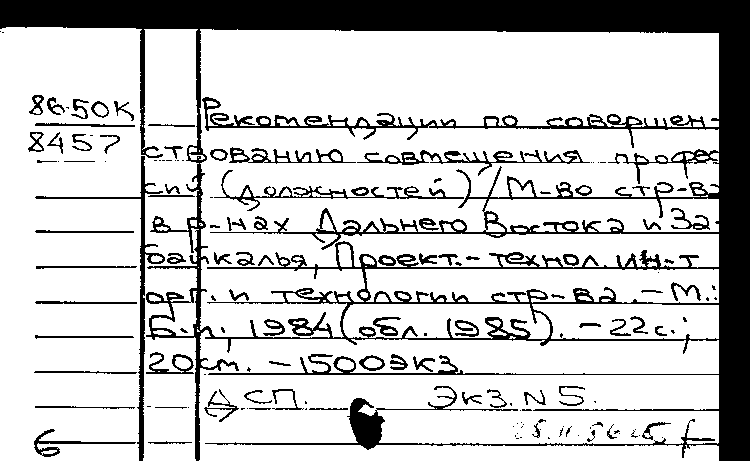 86-50К
8457
Рекомендации по совершен-
ствованию совмещения профес
сий (должностей) / М-во стр-ва
в р-нах Дальнего Востока и За-
байкалья, Проект.-технол. ин-т
орг. и технологии стр-ва. – М.:
Б.и., 1984 (обл. 1985). – 22с.;
20см. – 1500экз.
ДСП. Экз. N 5.
б